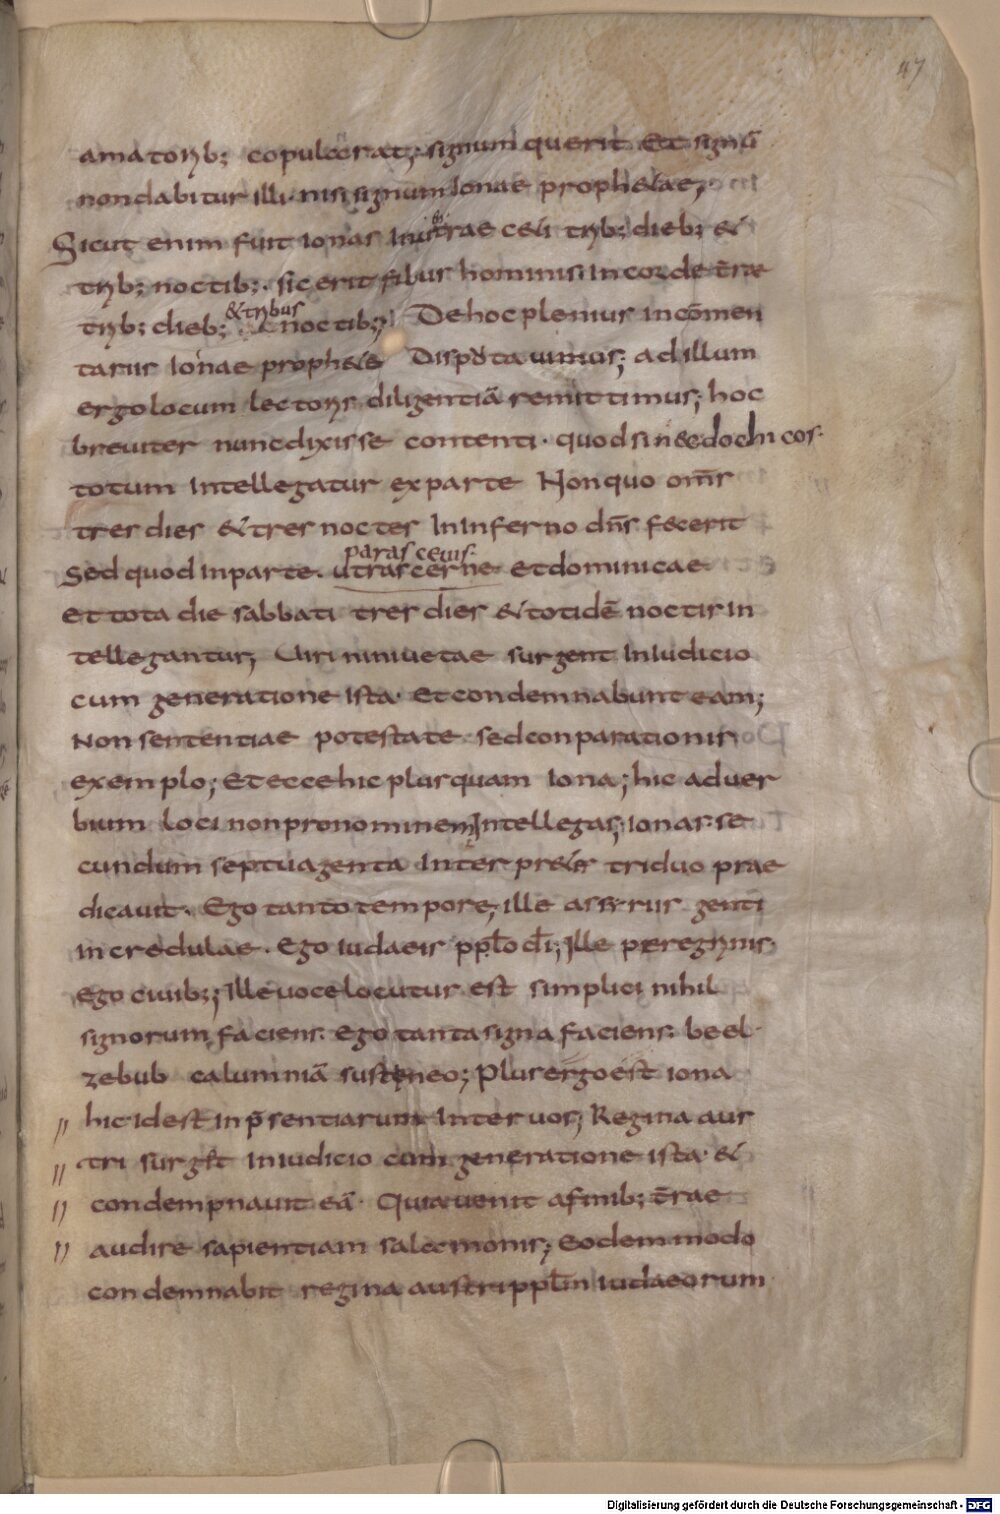 47
amatorib; copulaerat; signum querit Et signū
non dabitur illi nisi signum Ionae prophetae;
Sicut enim fuit Ionas in uentrae ceti trib; dieb; &
trib; noctib; sic erit filius hominis in corde terrae
& tribus
trib; dieb; noctib; De hoc plenius in cōmen
tariis Ionae prophete Disputauimus; ad illum
ergo locum lectoris diligentiā remittimus; hoc
breuiter nunc dixisse contenti · quod sinecdochicos·
totum intellegatur ex parte Non quo om̄s
tres dies & tres noctes In Inferno dn̄s fecerit
parasceuis·
Sed quod in parte · et dominicae
et tota die sabbati tres dies & totidē noctis in
tellegantur; Uiri niniuetae surgent In Iudicio
cum generatione Ista· Et condemnabunt eam;
Non sententiae potestate sed conparationis
exemplo; Et ecce hic plus quam Iona; hic aduer
bium loci non pronominem Intellegas; Ionas se
cundum septuagenta Interpretis triduo prae
dicauit· Ego tanto tempore, ille assyriis genti
incredulae · Ego iudaeis pplo di; Ille peregrinis
Ego ciuib;; Ille uoce locutus est simplici nihil
signorum faciens · Ego tanta signa faciens beel·
zebub calumniā susteneo; Plus ergo est iona
hic id est in p̄sentiarum Inter uos; Regina aus
tri surget In iudicio cum generatione ista· &
condempnauit eā· Quia uenit a finib; terrae
audire sapientiam salemonis; Eodem modo
condemnabit regina austri pplm iudaeorum
Digitalisierung gefördert durch die Deutsche Forschungsgemeinschaft - DFG